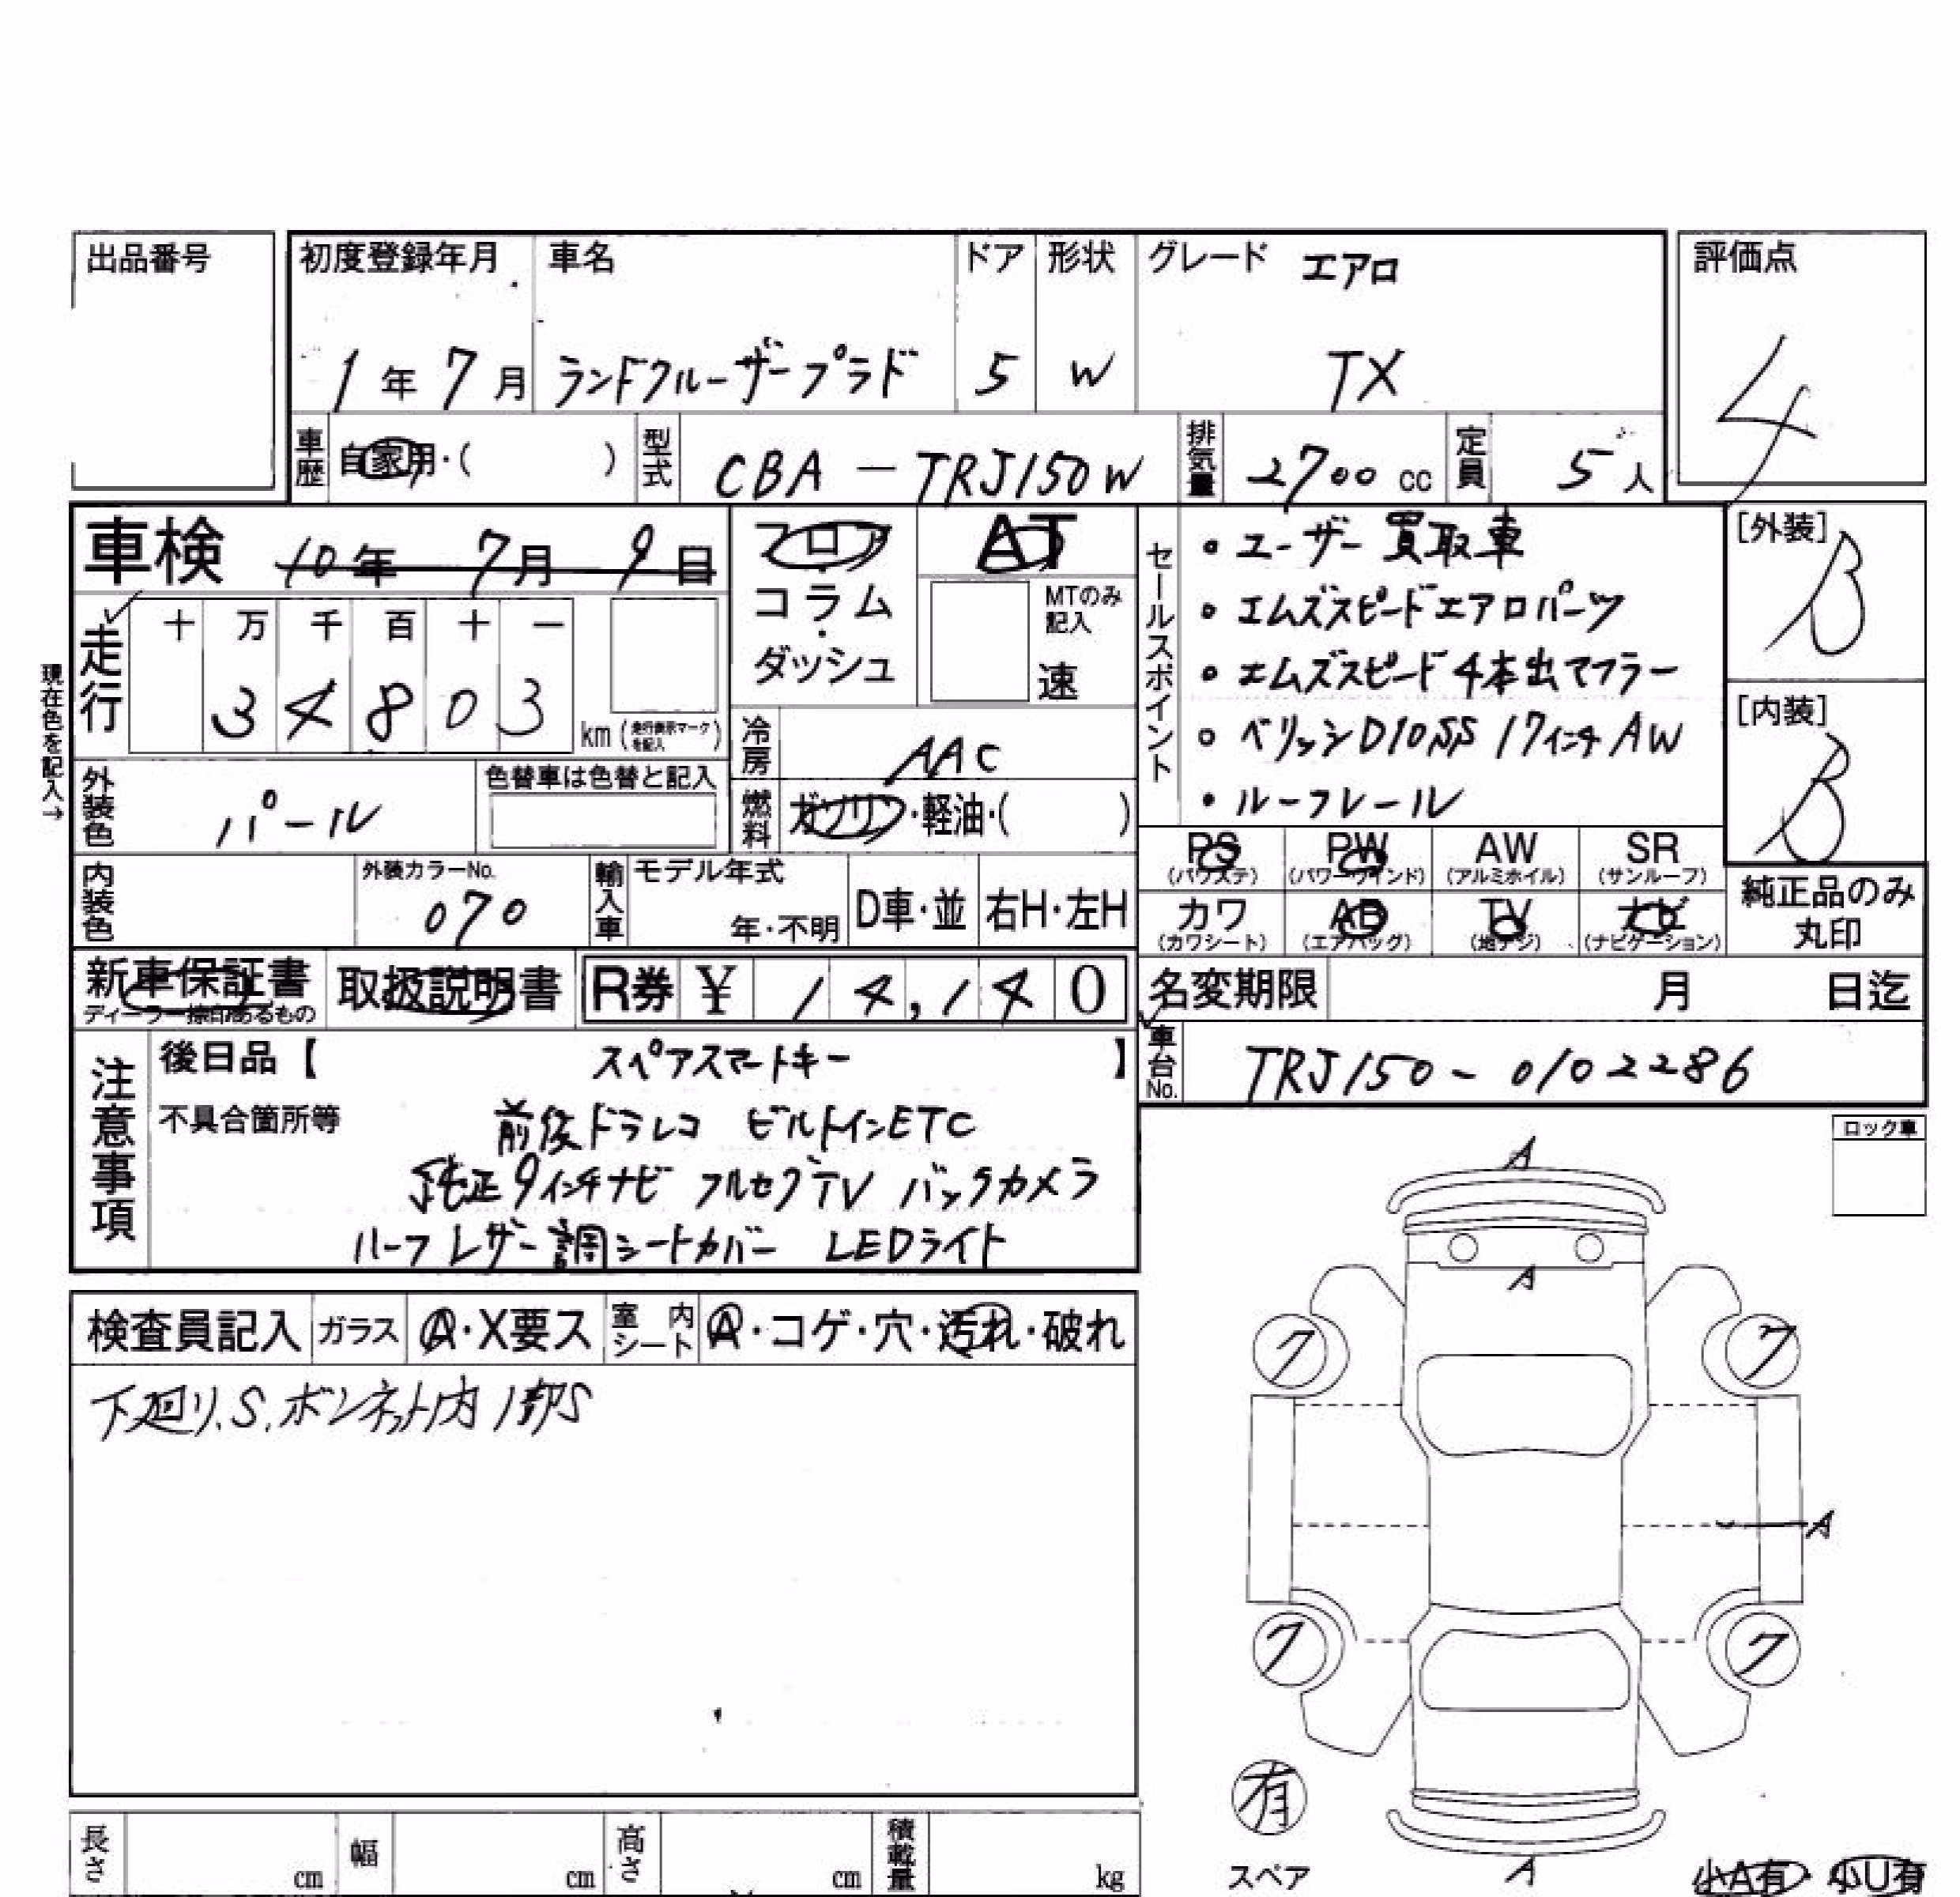 出品番号
初度登録年月 車名 ドア 形状 グレード エアロ 評価点
1年7月 ランドクルーザープラド 5 W TX 4
車歴 自家用・( ) 型式 CBA-TRJ150W 排気量 2700cc 定員 5人
車検 10年7月9日 フロア・コラム・ダッシュ AT
MTのみ記入 速
現在色を記入→
走行 十 万 千 百 十 一
3 4 8 0 3 km (走行表示マークを記入)
冷房 AAC
外装色 パール 色替車は色替と記入 燃料 ガソリン・軽油・( )
セールスポイント
・ユーザー買取車
・エムズスピードエアロパーツ
・エムズスピード4本出マフラー
・ベリッシD10SS 17インチAW
・ルーフレール
[外装] B
[内装] B
内装色 外装カラーNo. 070 輸入車 モデル年式 年・不明 D車・並 右H・左H
PS (パワステ) PW (パワーウインド) AW (アルミホイル) SR (サンルーフ)
カワ (カワシート) AB (エアバッグ) TV (地デジ) ナビ (ナビゲーション)
純正品のみ丸印
新車保証書 ディーラー捺印あるもの 取扱説明書 R券 ¥ 14,140
名変期限 月 日迄
車台No. TRJ150-0102286
注意事項 後日品【 スペアスマートキー 】
不具合箇所等 前後ドラレコ ビルトインETC
純正9インチナビ フルセグTV バックカメラ
ハーフレザー調シートカバー LEDライト
ロック車
検査員記入 ガラス A・X要ス 室内シート A・コゲ・穴・汚れ・破れ
下廻り、S、ボンネット内1部S
A
A
7 7
A
7 7
有
スペア
A
小A有・小U有
長さ cm 幅 cm 高さ cm 積載量 kg